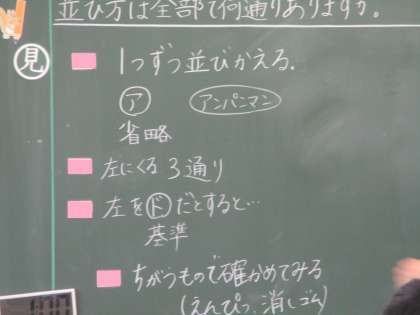 並び方は全部で何通りありますか。
見
1つずつ並びかえる.
ア アンパニマン
省略
左にくる 3通り
左をドだとすると…
基準
ちがうもので確かめてみる
(えんぴつ、消しゴム)